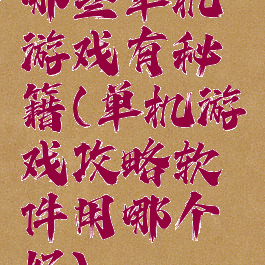 哪些单机
游戏有秘
籍(单机游
戏攻略软
件用哪个
好)